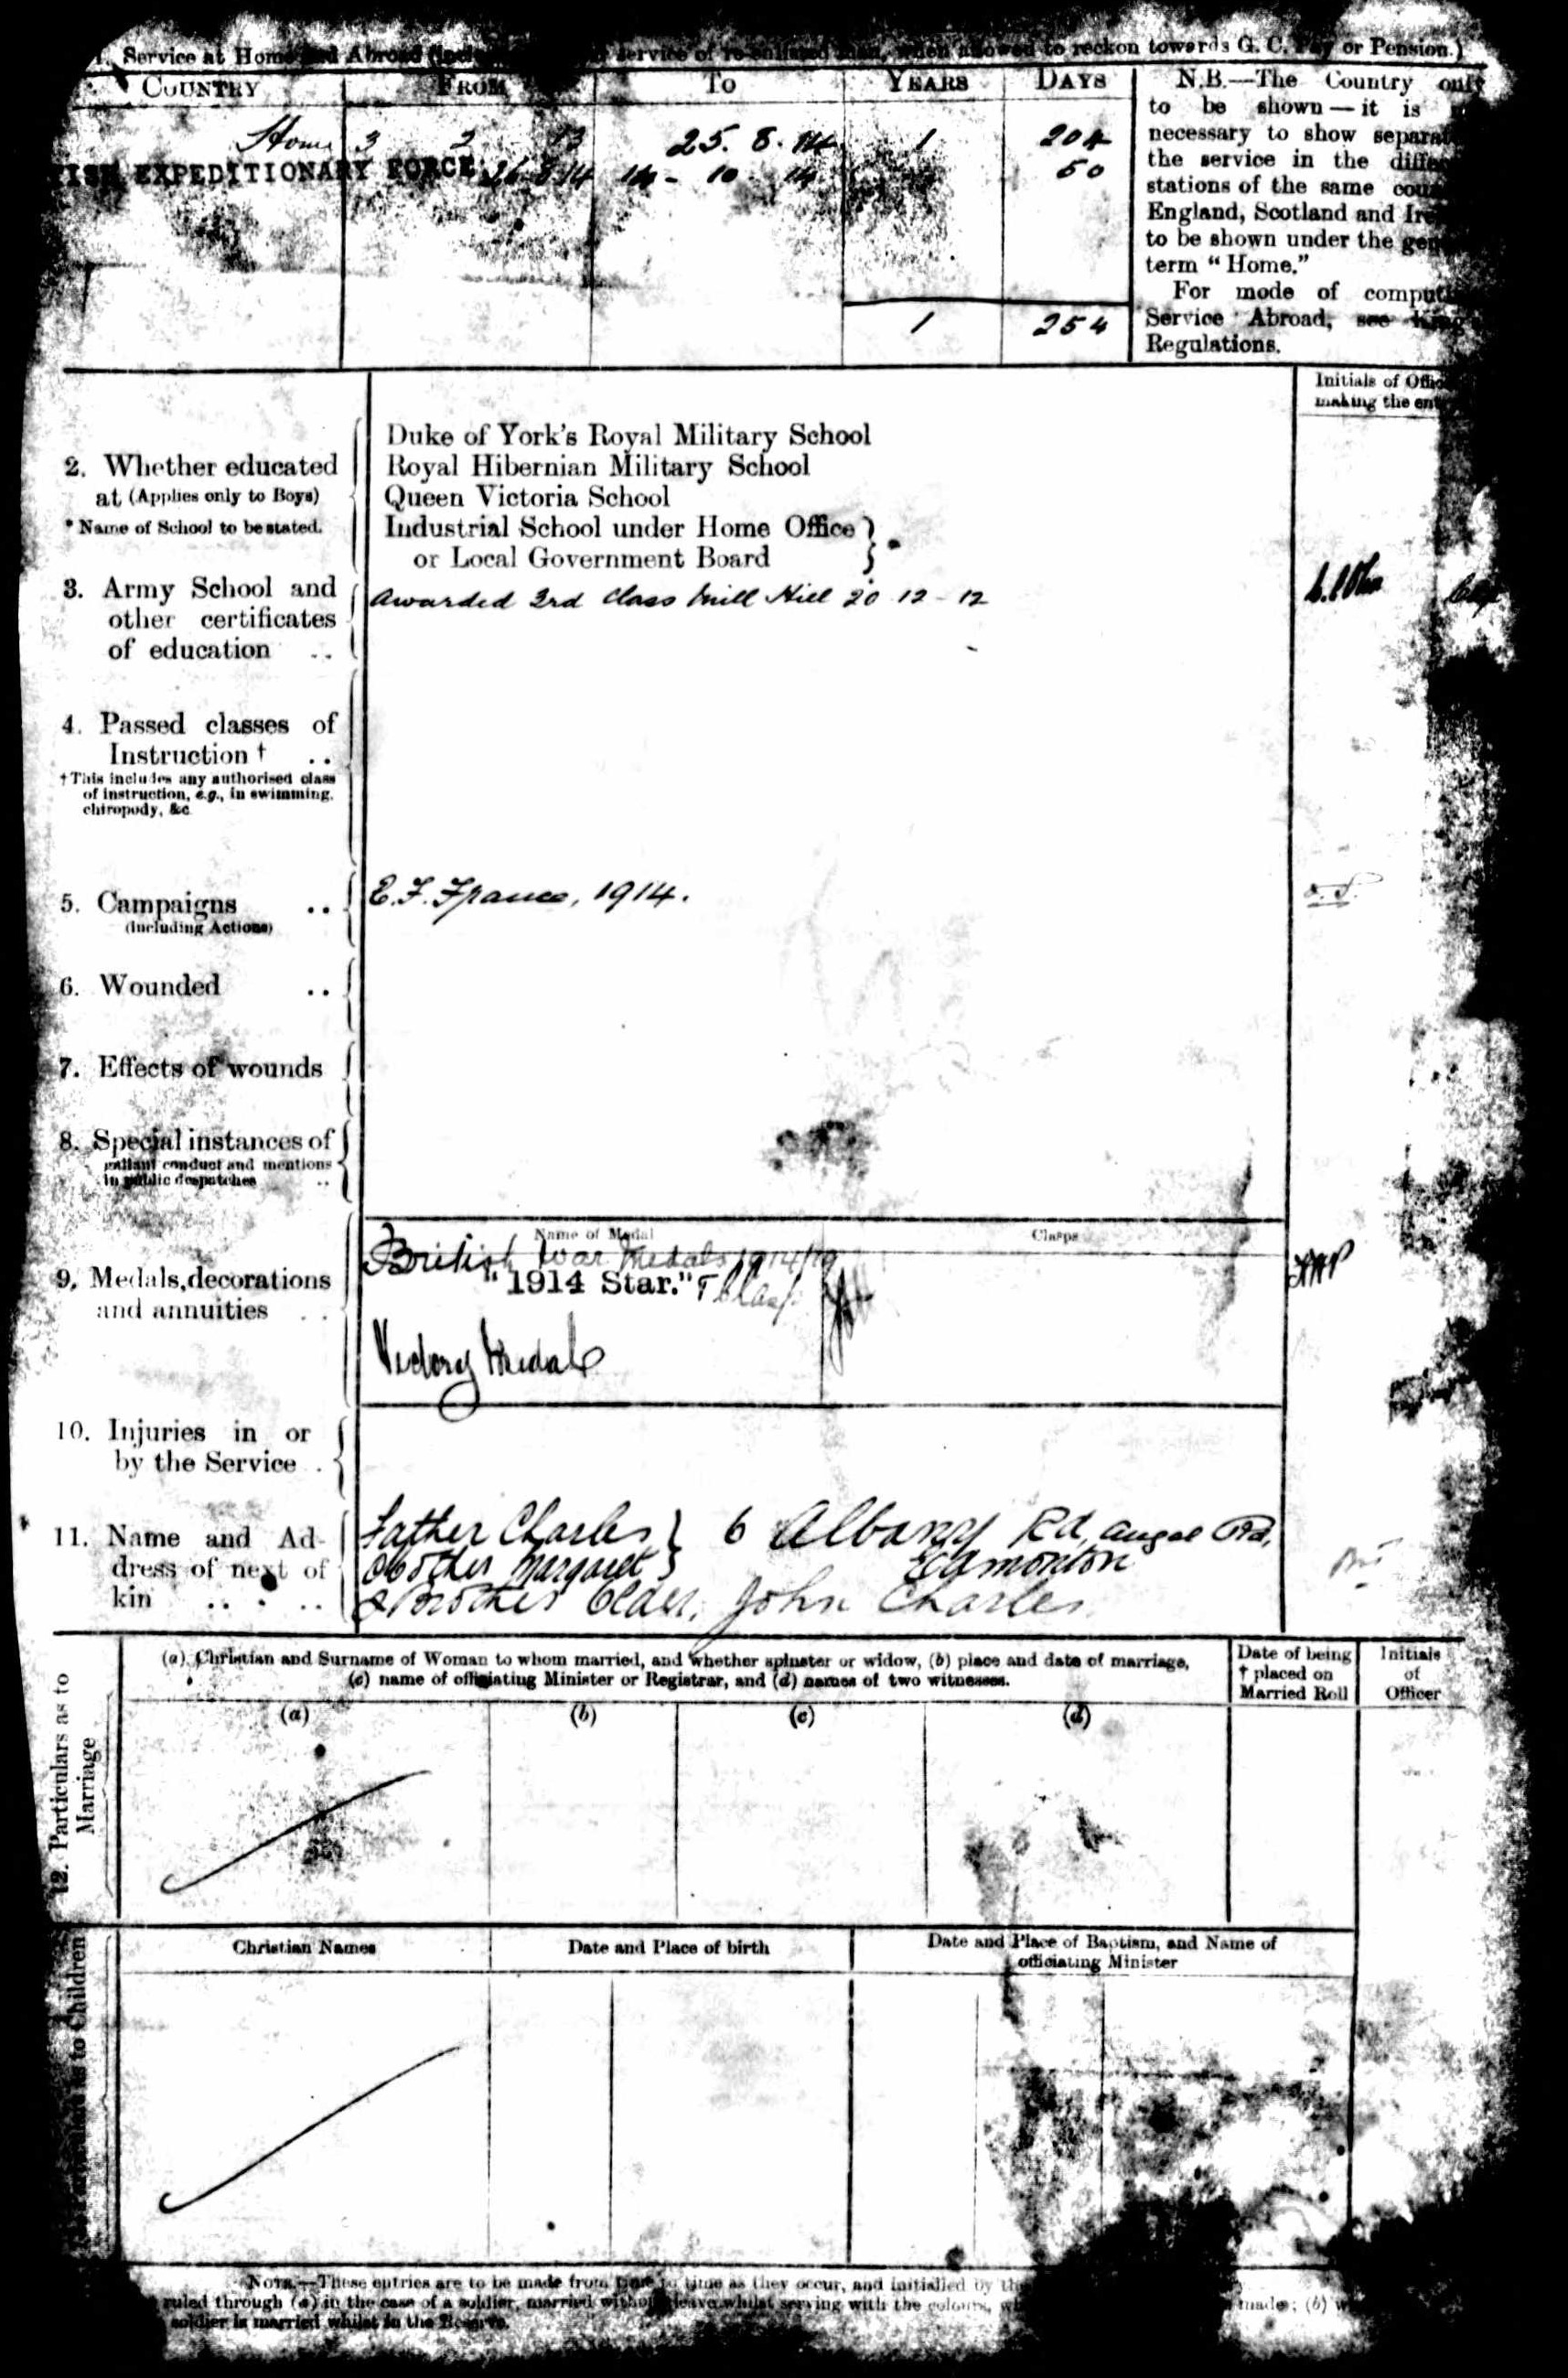 Service at Home and Abroad service of re-enlisted men, when allowed to reckon towards G. C. Pay or Pension.)
COUNTRY FROM To YEARS DAYS
Home 3 2 13 25. 8. 14 1 204
TISH EXPEDITIONARY FORCE 26-8-14 14 - 10 14 50
1 254
N.B.—The Country only
to be shown — it is
necessary to show separat
the service in the differ
stations of the same cou
England, Scotland and Ire
to be shown under the gen
term “Home.”
For mode of comput
Service Abroad, see King's
Regulations.
Initials of Offic
making the ent
2. Whether educated
at (Applies only to Boys)
* Name of School to be stated.
Duke of York's Royal Military School
Royal Hibernian Military School
Queen Victoria School
Industrial School under Home Office }
or Local Government Board } *
3. Army School and
other certificates
of education ..
Awarded 3rd Class Mill Hill 20 12 - 12
4. Passed classes of
Instruction † ..
† This includes any authorised class
of instruction, e.g., in swimming,
chiropody, &c.
5. Campaigns ..
(Including Actions)
E.F. France, 1914.
6. Wounded ..
7. Effects of wounds
8. Special instances of
gallant conduct and mentions
in public despatches ..
9. Medals, decorations
and annuities ..
Name of Medal Clasps
British War Medals 1914/19
"1914 Star."
Victory Medal
10. Injuries in or
by the Service .
11. Name and Ad-
dress of next of
kin .. . ..
Father Charles } 6 Albany Rd, Angel Rd,
Mother Margaret } Edmonton
Brother Elder, John Charles
12. Particulars as to
Marriage
(a) Christian and Surname of Woman to whom married, and whether spinster or widow, (b) place and date of marriage,
(c) name of officiating Minister or Registrar, and (d) names of two witnesses.
Date of being
† placed on
Married Roll
Initials
of
Officer
(a) (b) (c) (d)
as to Children
Christian Names Date and Place of birth
Date and Place of Baptism, and Name of
officiating Minister
NOTE.—These entries are to be made from time to time as they occur, and initialled by the
ruled through (a) in the case of a soldier, married without leave whilst serving with the colours, made; (b)
soldier is married whilst in the Reserve.